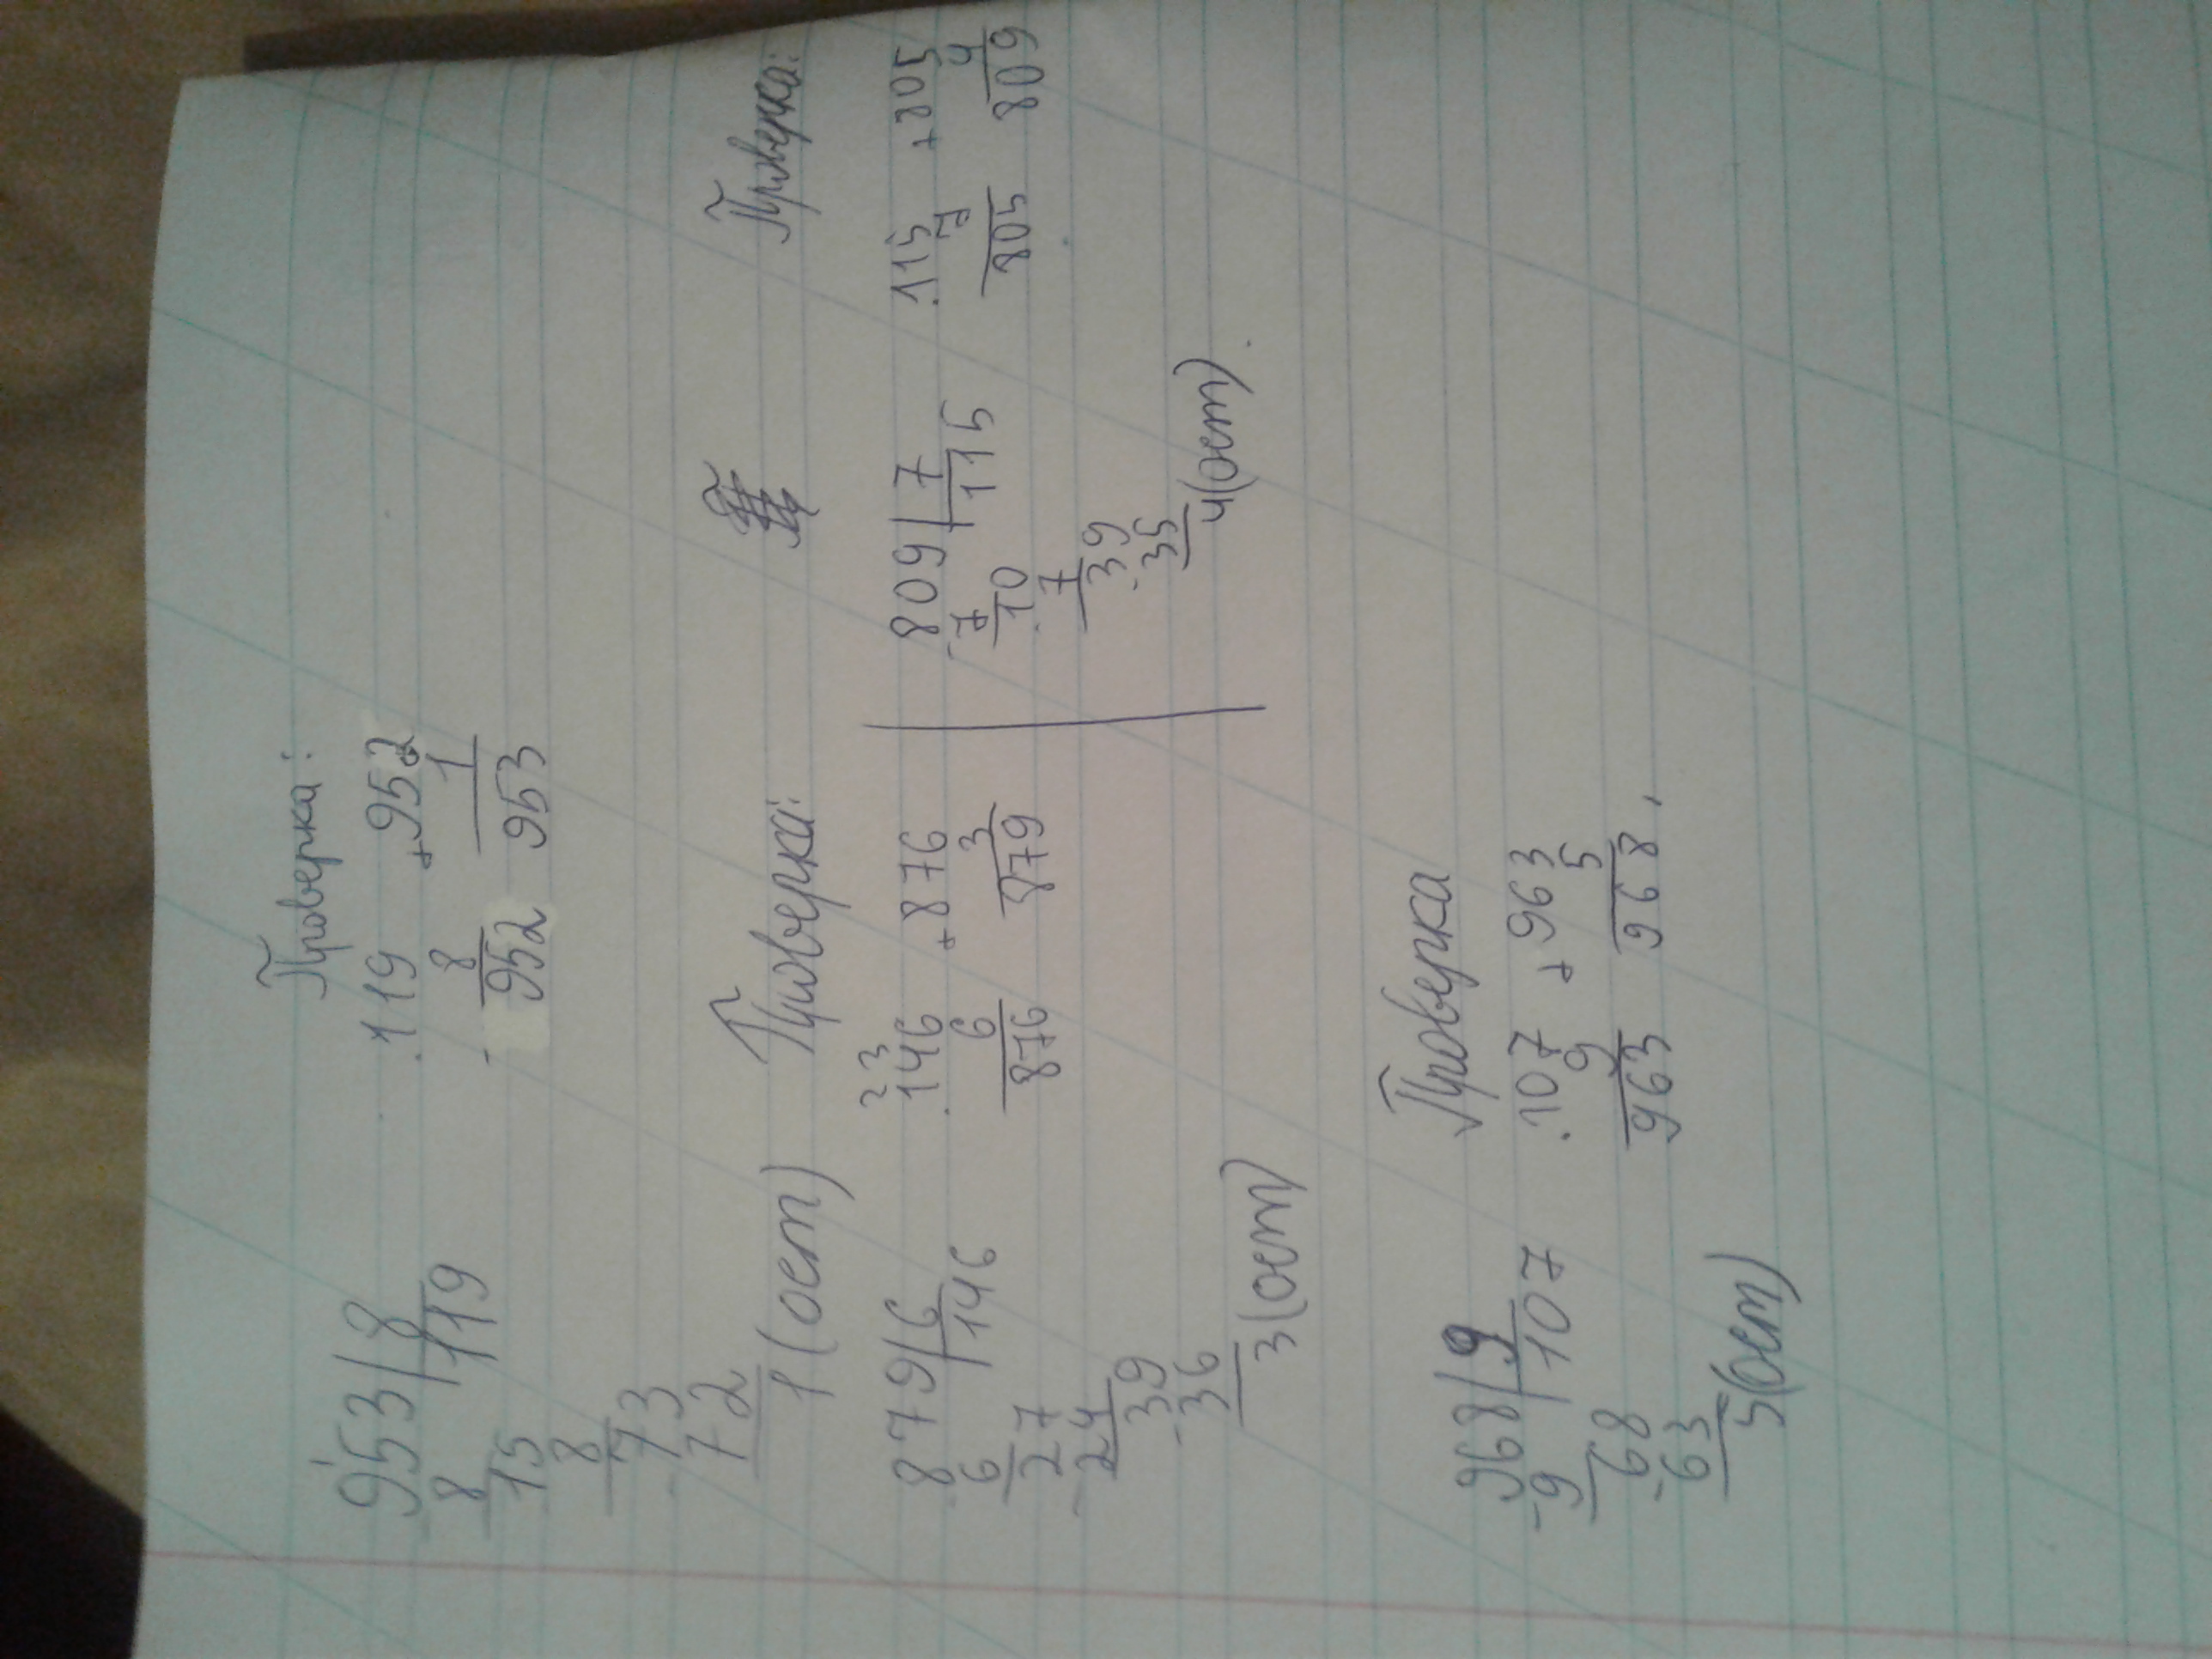 Проверка:
953 | 8 .119 +952
8 119 8 1
15 952 953
8
73
72
1 (ост) Проверка: Проверка:
2 3
879 | 6 .146 +876 809 | 7 .115 +805
6 146 6 3 -7 115 7 4
27 876 879 .10 805 809
-24 7
39 -39
-36 35
3 (ост) 4 (ост).
Проверка
968 | 9 .107 +963
-9 107 9 5
68 963 968,
-63
5 (ост)